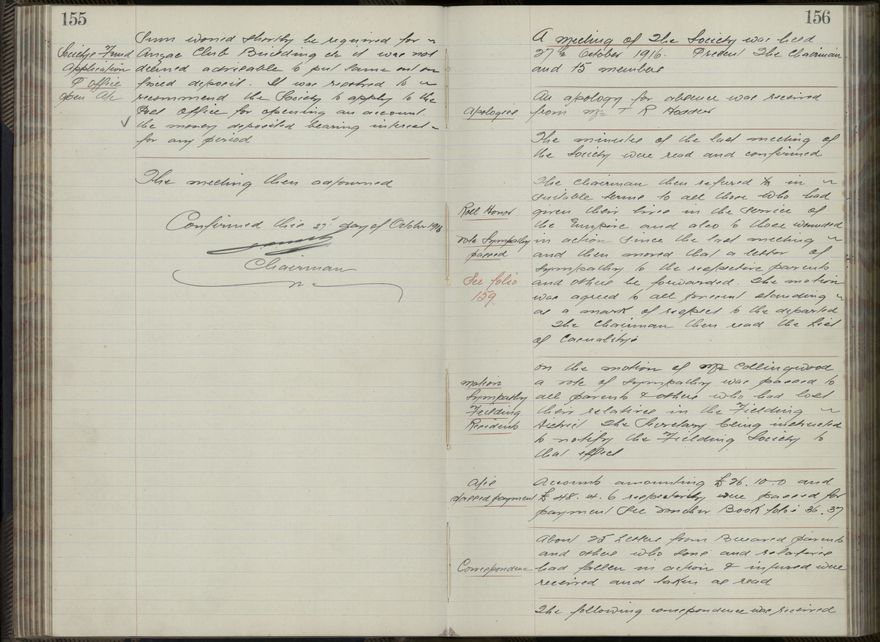 155
Society Fund
Application
P Office
Open A/c
Sum would shortly be required for
Anzac Club Building &c it was not
deemed advisable to put same out on
fixed deposit. It was resolved to
recommend the Society to apply to the
Post Office for opening an account.
the money deposited bearing interest
for any period
The meeting then adjourned
Confirmed this 27 day of October 1916
Chairman
156
A meeting of The Society was held
27th October 1916. Present The Chairman
and 15 members
Apologies
An apology for absence was received
from Mr T R
The minutes of the last meeting of
the Society were read and confirmed
Roll Honor
Vote Sympathy
passed
See folio
159
The Chairman then referred to in
suitable terms to all those who had
given their lives in the service of
the Empire and also to those wounded
in action since the last meeting
and then moved that a letter of
sympathy to the respective parents
and others be forwarded. The motion
was agreed to all present standing
as a mark of respect to the departed
The Chairman then read the list
of Casualties
Motion
Sympathy
Fielding
Residents
On the motion of Mr Collingwood
a vote of sympathy was passed to
all parents & others who had lost
their relatives in the Fielding
District The Secretary being instructed
to notify the Fielding Society to
that effect
A/cs
passed payment
Accounts amounting £26.10.0 and
£48.4.6 respectively were passed for
payment See Voucher Book folio 36.37
Correspondence
About 25 letters from Bereaved parents
and others who sons and relatives
had fallen in action & injured were
received and taken as read
The following correspondence was received